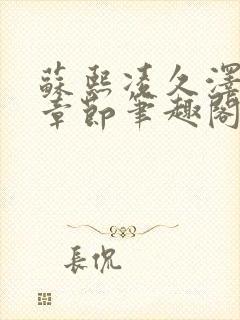 蘇熙凌久澤
章節筆趣閣
長侃